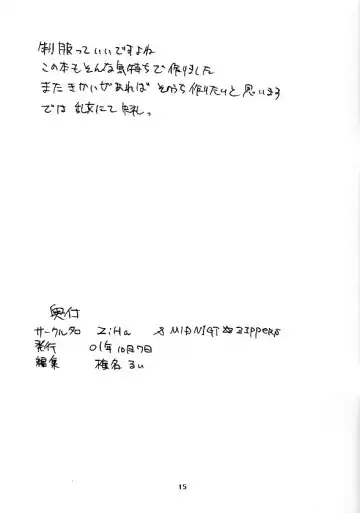 制服っていいですよね
この本もそんな気持ちで作りました
またきかいがあれば そのうち作りたいと思います
では 乱文にて 失礼。
奥付
サークル名 ZiHa & MIDNIGT ZIPPERS
発行 01年10月7日
編集 椎名るい
15